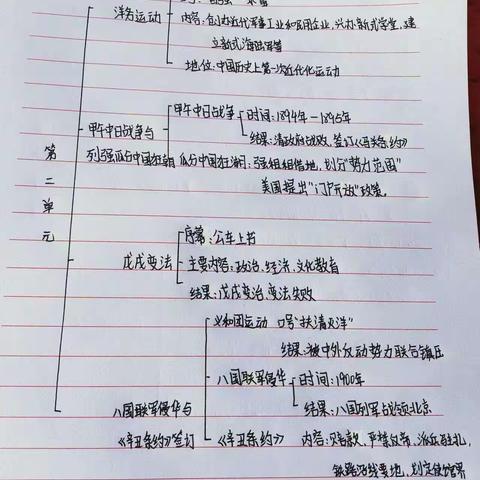 洋务运动
内容:创办近代军事工业和民用企业,兴办新式学堂,建
立新式海陆军等
地位:中国历史上第一次近代化运动
甲午中日战争与
列强瓜分中国狂潮
甲午中日战争
时间:1894年—1895年
结果:清政府战败,签订《马关条约》
瓜分中国狂潮:强租租借地,划分"势力范围"
美国提出"门户开放"政策.
第二单元
戊戌变法
序幕:公车上书
主要内容:政治、经济、文化教育
结果:戊戌变治,变法失败
八国联军侵华与
《辛丑条约》签订
义和团运动 口号"扶清灭洋"
结果:被中外反动势力联合镇压
八国联军侵华
时间:1900年
结果:八国列军占领北京
《辛丑条约》 内容:赔款、严禁反帝、派兵驻扎,
铁路沿线要地,划定使馆界